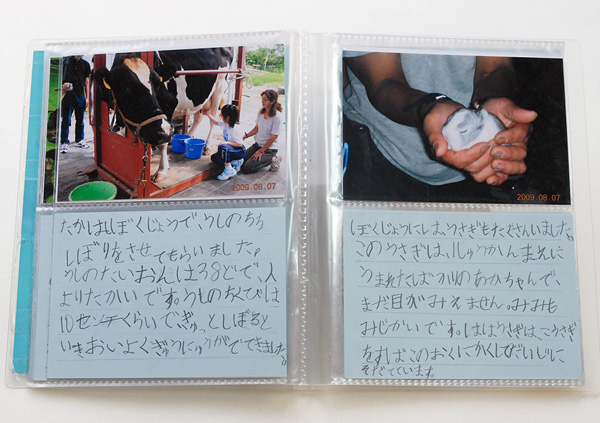 2009.08.07
たかはしぼくじょうで、うしのちち
しぼりをさせてもらいました。
うしのたいおんは38どで、人
よりたかいです。うしのちくびは
10センチくらいで、ぎゅっとしぼると
いきおいよくぎゅうにゅうがでてきました。
2009.08.07
ぼくじょうには、うさぎもたくさんいました。
このうさぎは、1しゅうかんまえに
うまれたばかりのあかちゃんで、
まだ目がみえません。みみも
みじかいです。ははうさぎは、こうさぎ
をすばこのおくにかくしてだいじに
そだてています。